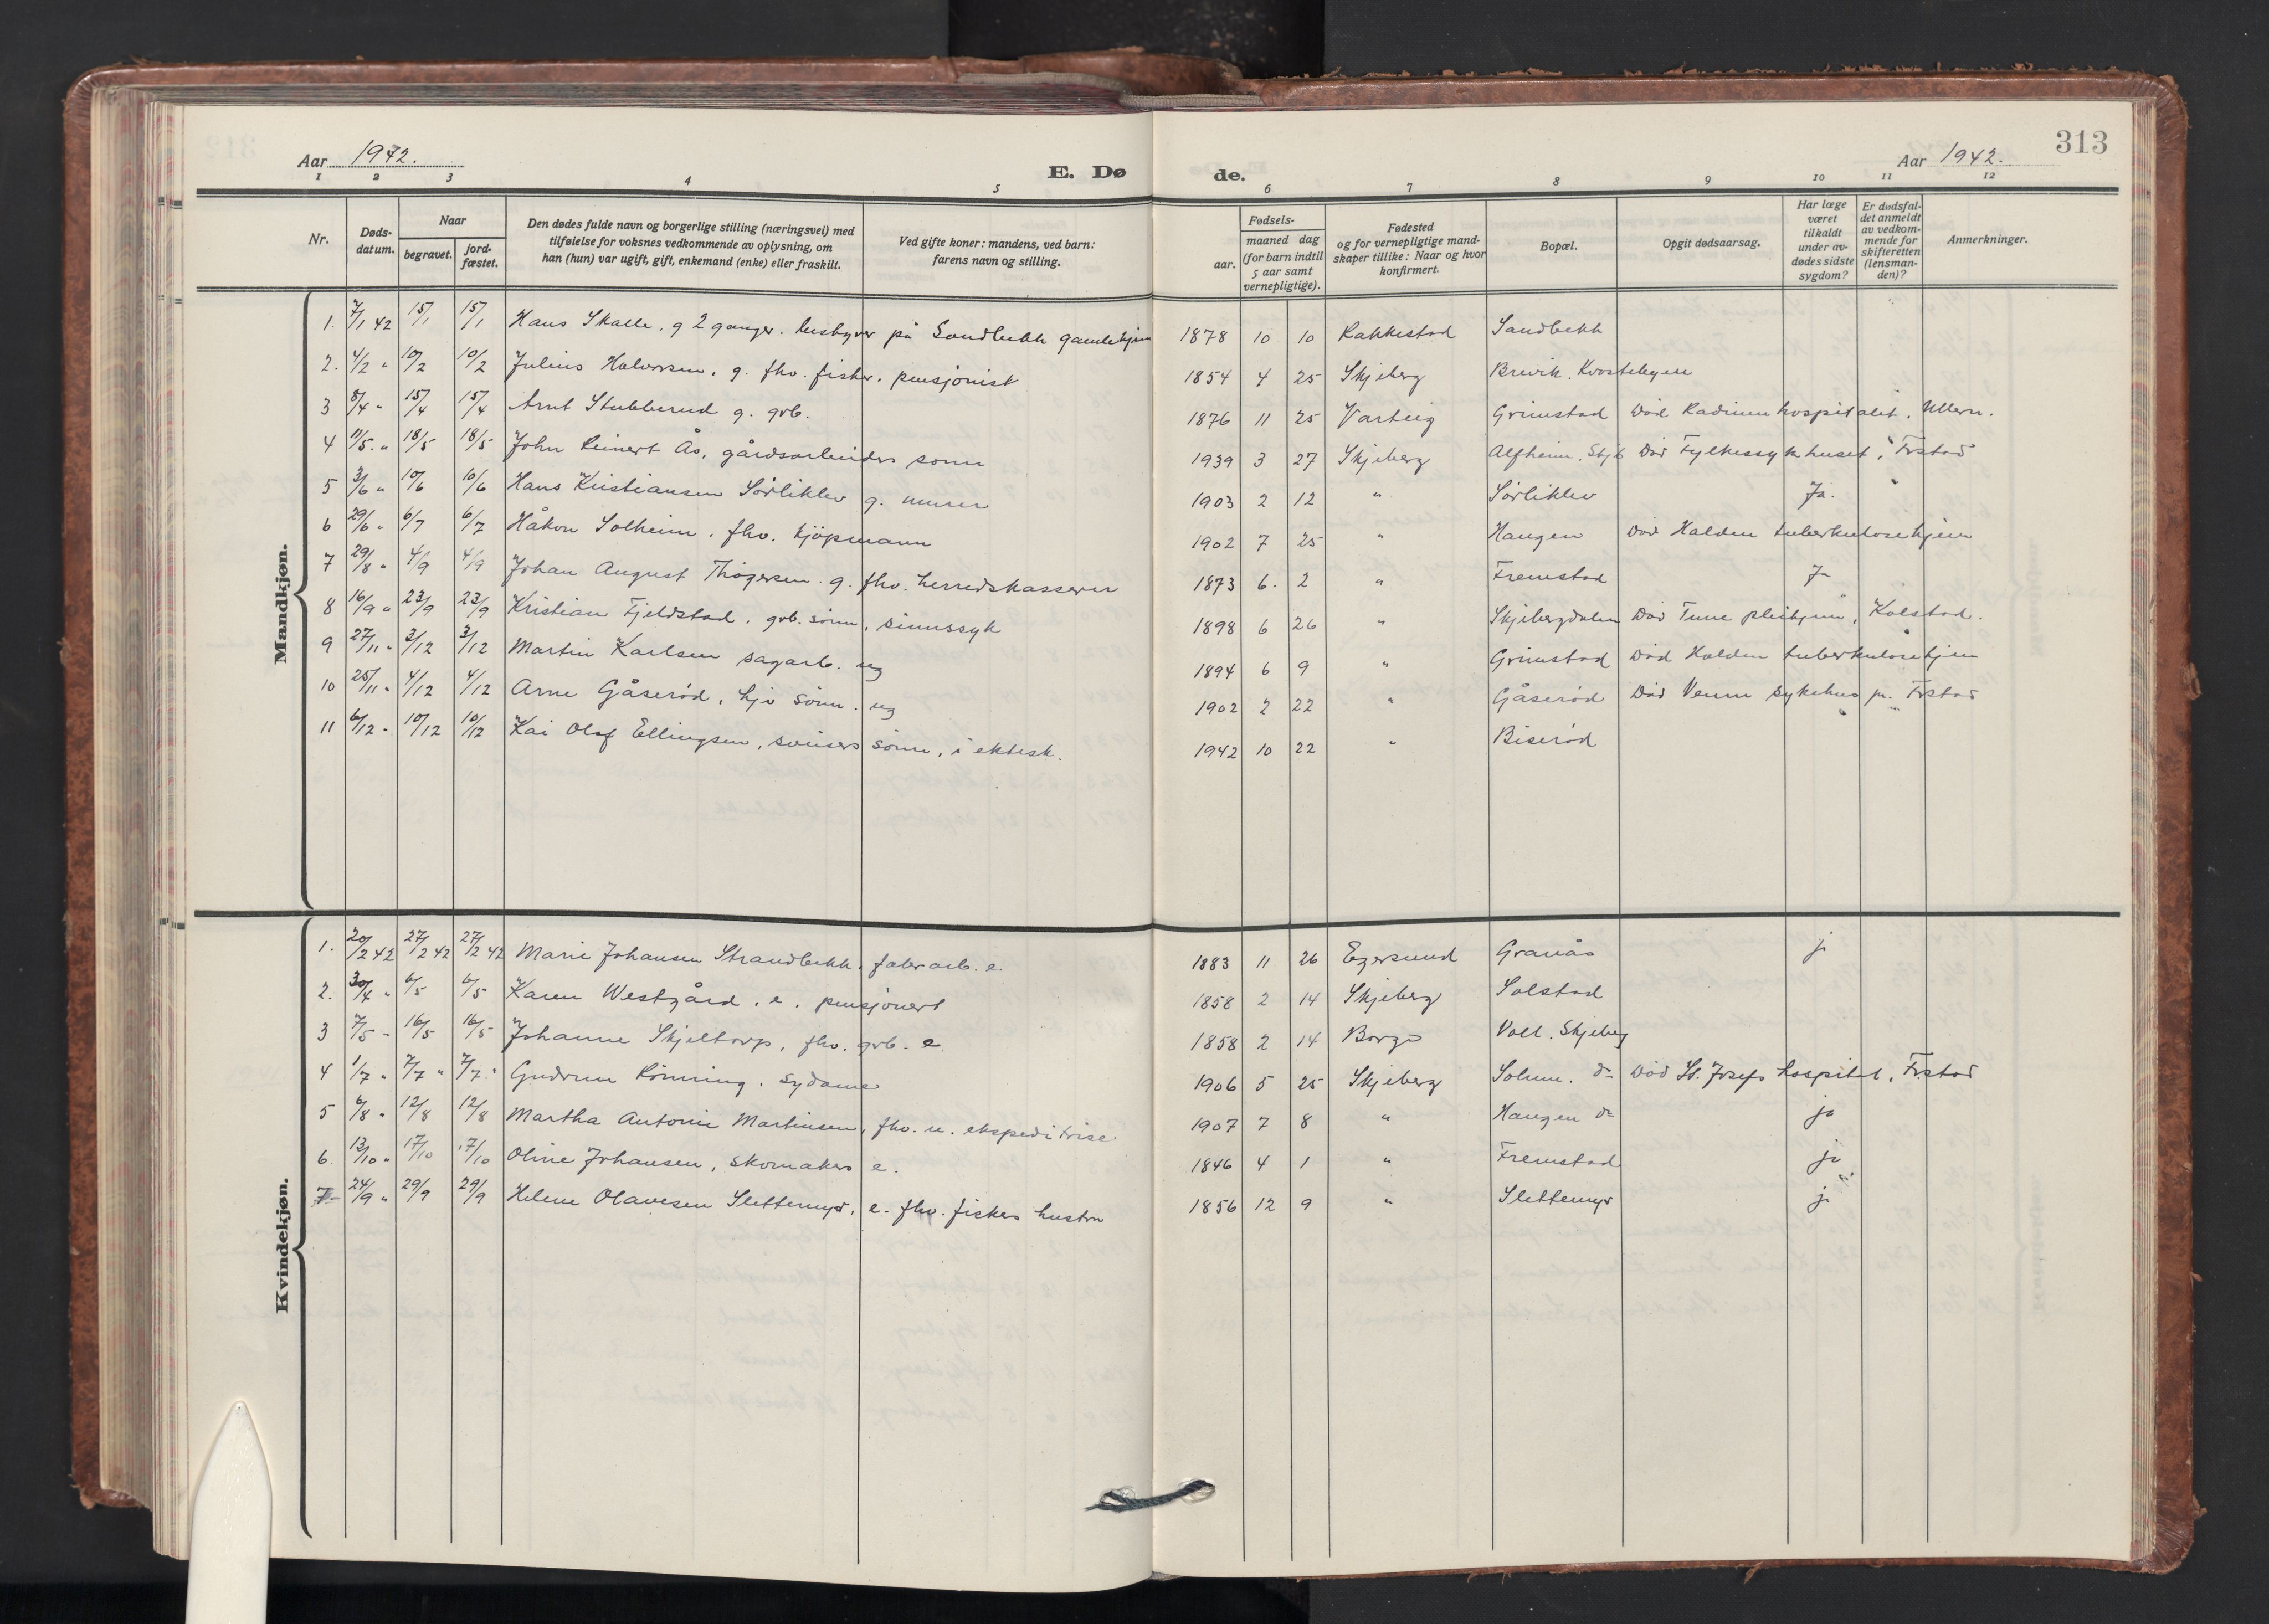 313
Aar 1942.
E. Dø
de.
Aar 1942.
1 2 3 4 5 6 7 8 9 10 11 12
Nr.
Døds-
datum.
Naar
begravet.
jord-
fæstet.
Den dødes fulde navn og borgerlige stilling (næringsvei) med
tilføielse for voksnes vedkommende av oplysning, om
han (hun) var ugift, gift, enkemand (enke) eller fraskilt.
Ved gifte koner: mandens, ved barn:
farens navn og stilling.
Fødsels-
aar.
maaned dag
(for barn indtil
5 aar samt
vernepligtige).
Fødested
og for vernepligtige mand-
skaper tillike: Naar og hvor
konfirmert.
Bopæl.
Opgit dødsaarsag.
Har læge
været
tilkaldt
under av-
dødes sidste
sygdom?
Er dødsfal-
det anmeldt
av vedkom-
mende for
skifteretten
(lensman-
den)?
Anmerkninger.
Mandkjøn.
1. 7/1 42 15/1 15/1 Hans Skalle. g 2 ganger. husbyrer på Sandbekk gamlehjem 1878 10 10 Rakkestad Sandbekk
2. 4/2 " 10/2 10/2 Julius Halvorsen. g. fhv. fisker. pensjonist 1854 4 25 Skjeberg Brevik. Kvastebyen
3 8/4 " 15/4 15/4 Arnt Stubberud g. grb. 1876 11 25 Varteig Grimstad Død Radiumhospitalet. Ullern.
4 11/5. " 18/5 18/5 John Reinert Ås, gårdsarbeiders sønn 1939 3 27 Skjeberg Alfheim. Skjb Død Fylkessykehuset, Frstad
5 3/6 " 10/6 10/6 Hans Kristiansen Sørliklev g. murer 1903 2 12 " Sørliklev Ja.
6 29/6 " 6/7 6/7 Håkon Solheim. fhv. kjøpmann 1902 7 25 " Haugen Død Halden tuberkulosehjem
7 29/8 " 4/9 4/9 Johan August Thøgersen. g. fhv. herredskasserer 1873 6. 2 " Fremstad Ja
8 16/9 " 23/9 23/9 Kristian Fjeldstad. grb. sønn, sinnssyk 1898 6 26 " Skjebergdalen Død Tune pleiehjem, Kalstad.
9 27/11 " 3/12 3/12 Martin Karlsen sagarb. ug 1894 6 9 " Grimstad Død Halden tuberkulosehjem
10 25/11 " 4/12 4/12 Arne Gåserød. hjv sønn. ug 1902 2 22 " Gåserød Død Veum sykehus pr. Frstad
11 6/12 " 10/12 10/12 Kai Olaf Ellingsen, sveisers sønn, i ektesk. 1942 10 22 " Biserød
Kvindekjøn.
1. 20/2 42 27/2 42 27/2 42 Marie Johansen Strandbekk. faberarb. e. 1883 11 26 Egersund Granås ja
2. 30/4 " 6/5 6/5 Karen Westgård. e. pensjonert 1858 2 14 Skjeberg Solstad
3 7/5 " 16/5 16/5 Johanne Skjeltorp, fhv. grb. e 1858 2 14 Borge Voll. Skjeberg
4 1/7 " 7/7 " 7/7 " Gudrun Rønning. Sydame 1906 5 25 Skjeberg Solum. do Død St. Josefs hospital, Frstad
5 6/8 " 12/8 12/8 Martha Antonie Martinsen, fhv. u. ekspeditrise 1907 7 8 " Haugen do ja
6. 13/10 " 17/10 17/10 Oline Johansen, skomakers e. 1846 4 1 " Fremstad ja
7 24/9 " 29/9 29/9 Helene Olavesen Slettemyr, e. fhv. fiskers hustru 1856 12 9 " Slettemyr ja